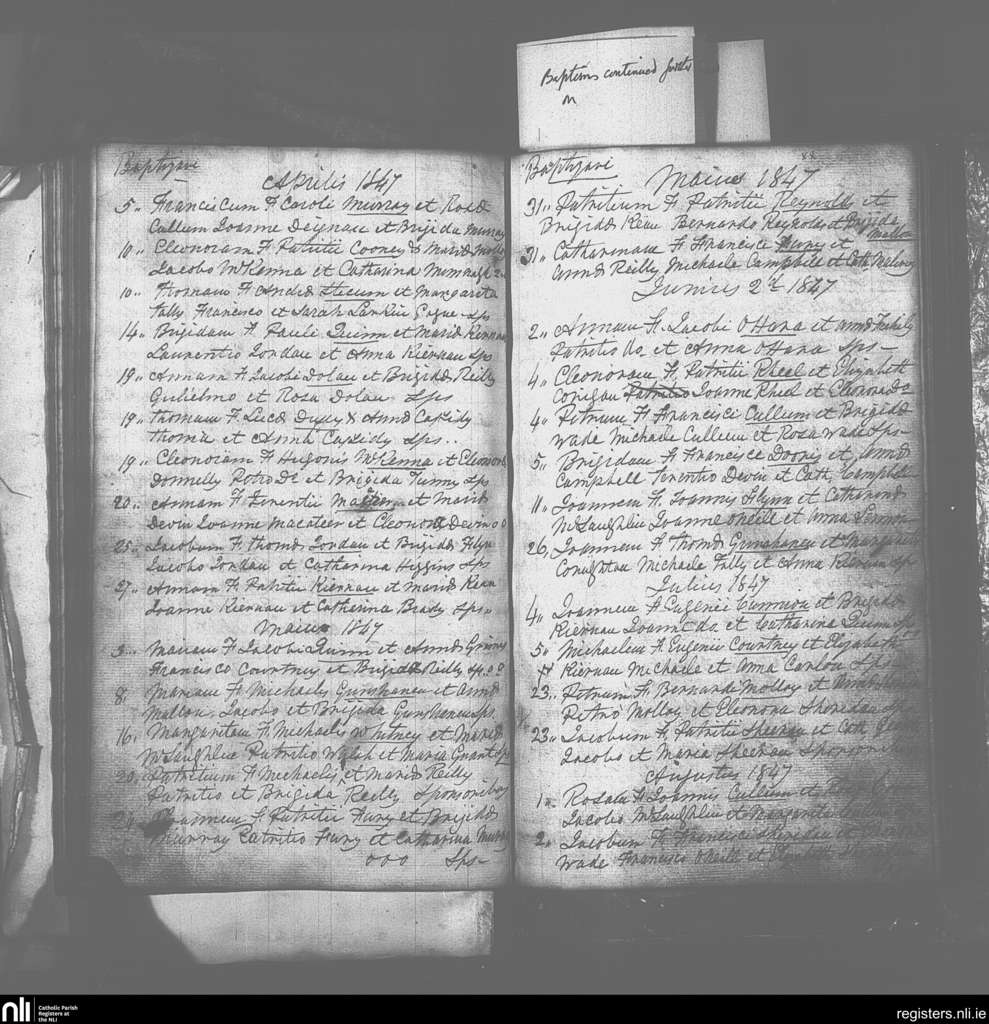 Baptisms continued further
on
Baptizavi
Aprilis 1847
5,, Franciscum F Caroli Murray et Rosa
Cullum Joanne Deignau et Brigida Murray
10,, Eleonoram F Patritii Cooney & Maria
Jacobo McKenna et Catharina
10,, Thomam F Andia et Margarita
Fally Francisco et Sarah Larkin Sps
14,, Brigidam F Pauli Quinn et Maria Kiernan
Laurentio Jordan et Anna Kiernan Sps
19,, Annam F Jacobi Dolan et Brigida Reilly
Gulielmo et Rosa Dolan Sps
19,, Thomam F Luca & Anna Cassidy
Thoma et Anna Cassidy Sps..
19,, Eleonoram F Hugonis McKenna et Eleonora
Donnelly Petro Do et Brigida Tunny Sps
20,, Annam F Terentii et Maria
Devin Joanne Macateer et Eleonora Devin
25,, Jacobum F Thoma Jordan et Brigida Flyn
Jacobo Jordan et Catharina Higgins Sps
27,, Annam F Patritii Kiernan et Maria Kern
Joanne Kiernan et Catherina Brady Sps,,
Maius 1847
3,, Mariam F Jacobi Quinn et Anna
Francisco Courtney et Brigida Reilly Sps
8. Mariam F Michaelis Gunshanen et Anna
Mallon, Jacobo et Brigida Gunshanen Sps
16,, Margaritam F Michaelis Whitney et Maria
McLaughlin Patritio Walsh et Maria Grant Sps
20,, Patritium F Michaelis et Maria Reilly
Patritio et Brigida Reilly Sponsoribus
Joannem F Patritii Fury et Brigida
Murray Patritio Fury et Catharina Murray
ooo Sps-
88
Baptizavi
Maius 1847
31,, Patritium F Patritii Reynolds et
Brigida Kene Bernardo Reynolds et Brigida
Mallon
31,, Catharinam F Francisci Fury et
Anna Reilly Michaele Campbell et Cath
Junius 2d 1847
2,, Annam F. Jacobi OHara et Anna
Patritio do. et Anna OHara Sps-
4,, Eleonoram F. Patritii Rheel et Elizabett
Corigan Patritio Joanne Rheel et Eleonora Do
4,, Petrum F Francisci Cullum et Brigida
Wade Michaele Cullum et Rosa Wade Sps-
5,, Brigidam F Francisci Dooris et Anna
Campbell Terentio Devin et Cath. Campbell
11,, Joannem F Joannis Flynn et Catharina
McLaughlin Joanne ONeill et Anna
26, Joannem F Thoma Gunshanen et Margarita
Conaghtan Michaele Fally et Anna Kiernan Sps
Julius 1847
4,, Joannem F Eugenii et Brigida
Kiernan Joanne do. et Catharina Quinn Sps
5,, Michaelem F Eugenii Courtney et Elizabeth
Kiernan Michaele et Anna Carlon Sps
23,, Petrum F Bernardi Molloy et
Petro Molloy et Eleonora Sheredan Sps
23,, Jacobum F Patritii Sheeran et Cath
Jacobo et Maria Sheeran Sponsoribus
Augustus 1847
1,, Rosam F Joannis Cullum et
Jacobo McLaughlin et Margarita
2,, Jacobum F Francisci Sheridan et
Wade Francisco ONeill et
nli
Catholic Parish
Registers at
the NLI
registers.nli.ie